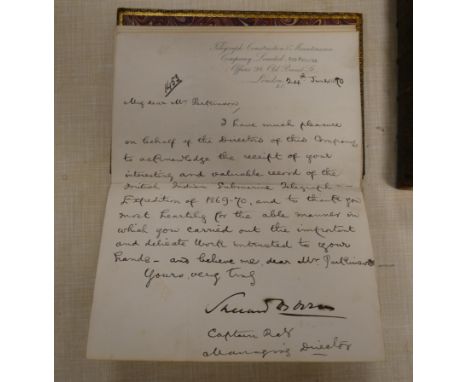 Telegraph Construction & Maintenance
Company Limited
Offices 38 Old Broad St
London, 24th June 1870
My dear Mr. Parkinson,
I have much pleasure
on behalf of the Directors of this Company
to acknowledge the receipt of your
interesting and valuable record of the
British Indian Submarine Telegraph
Expedition of 1869-70, and to thank you
most heartily for the able manner in
which you carried out the important
and delicate work intrusted to your
hands – and believe me, dear Mr. Parkinson
Yours very truly
Sherard Osborn
Captain R.N.
Managing Director